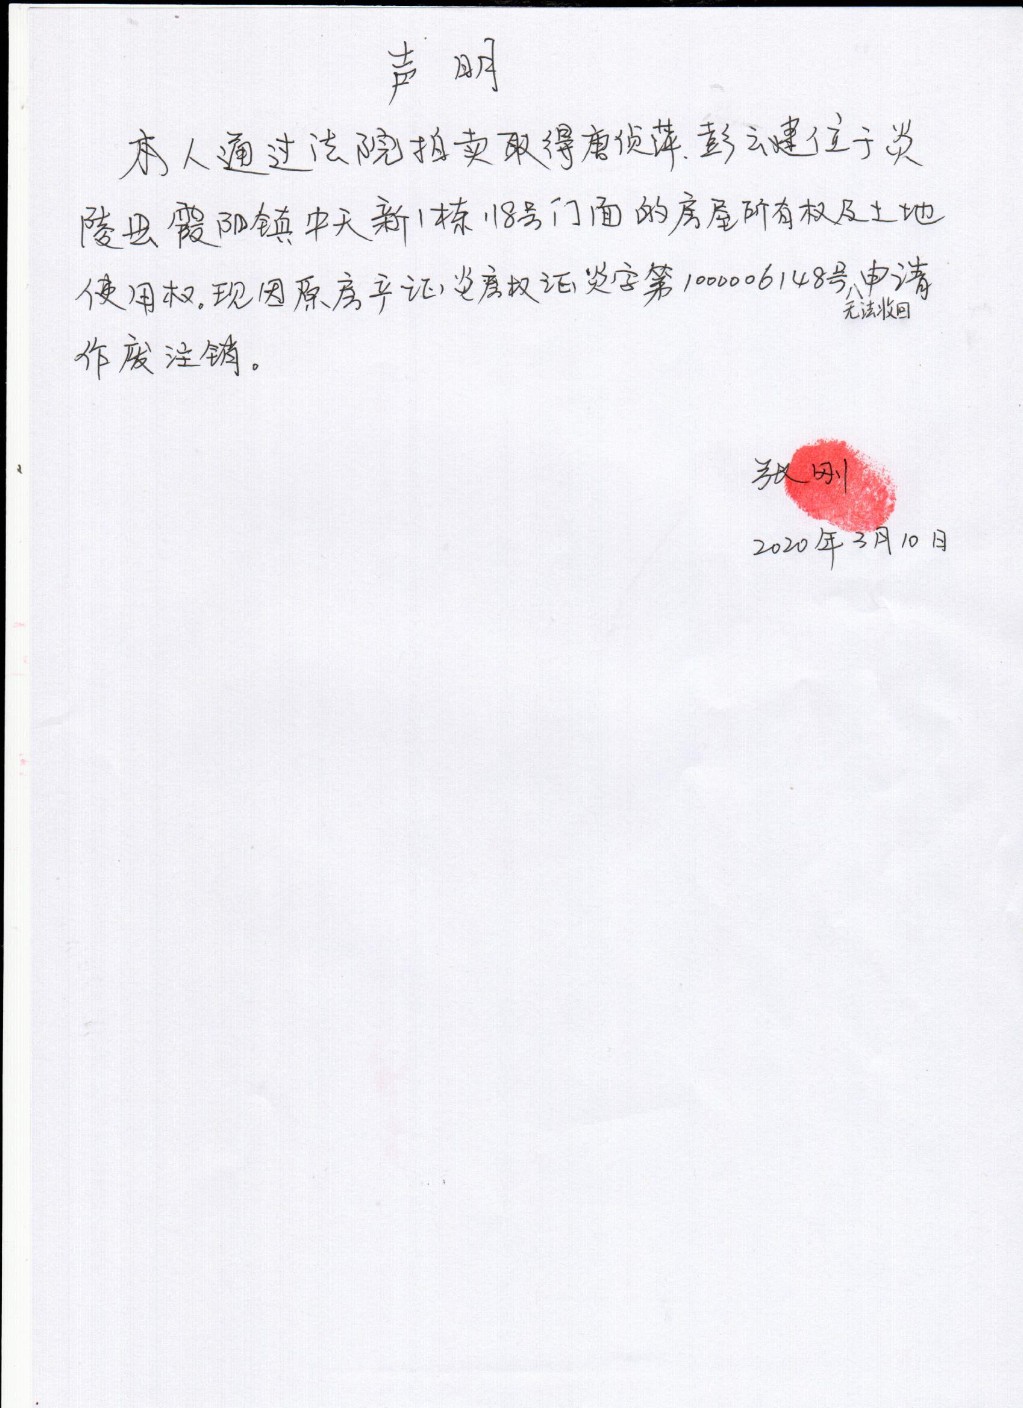 声明
本人通过法院拍卖取得唐侦萍、彭云建位于炎
陵县霞阳镇中天新1栋118号门面的房屋所有权及土地
使用权。现因原房产证炎房权证炎字第1000006148号无法收回申请
作废注销。
张刚
2020年3月10日